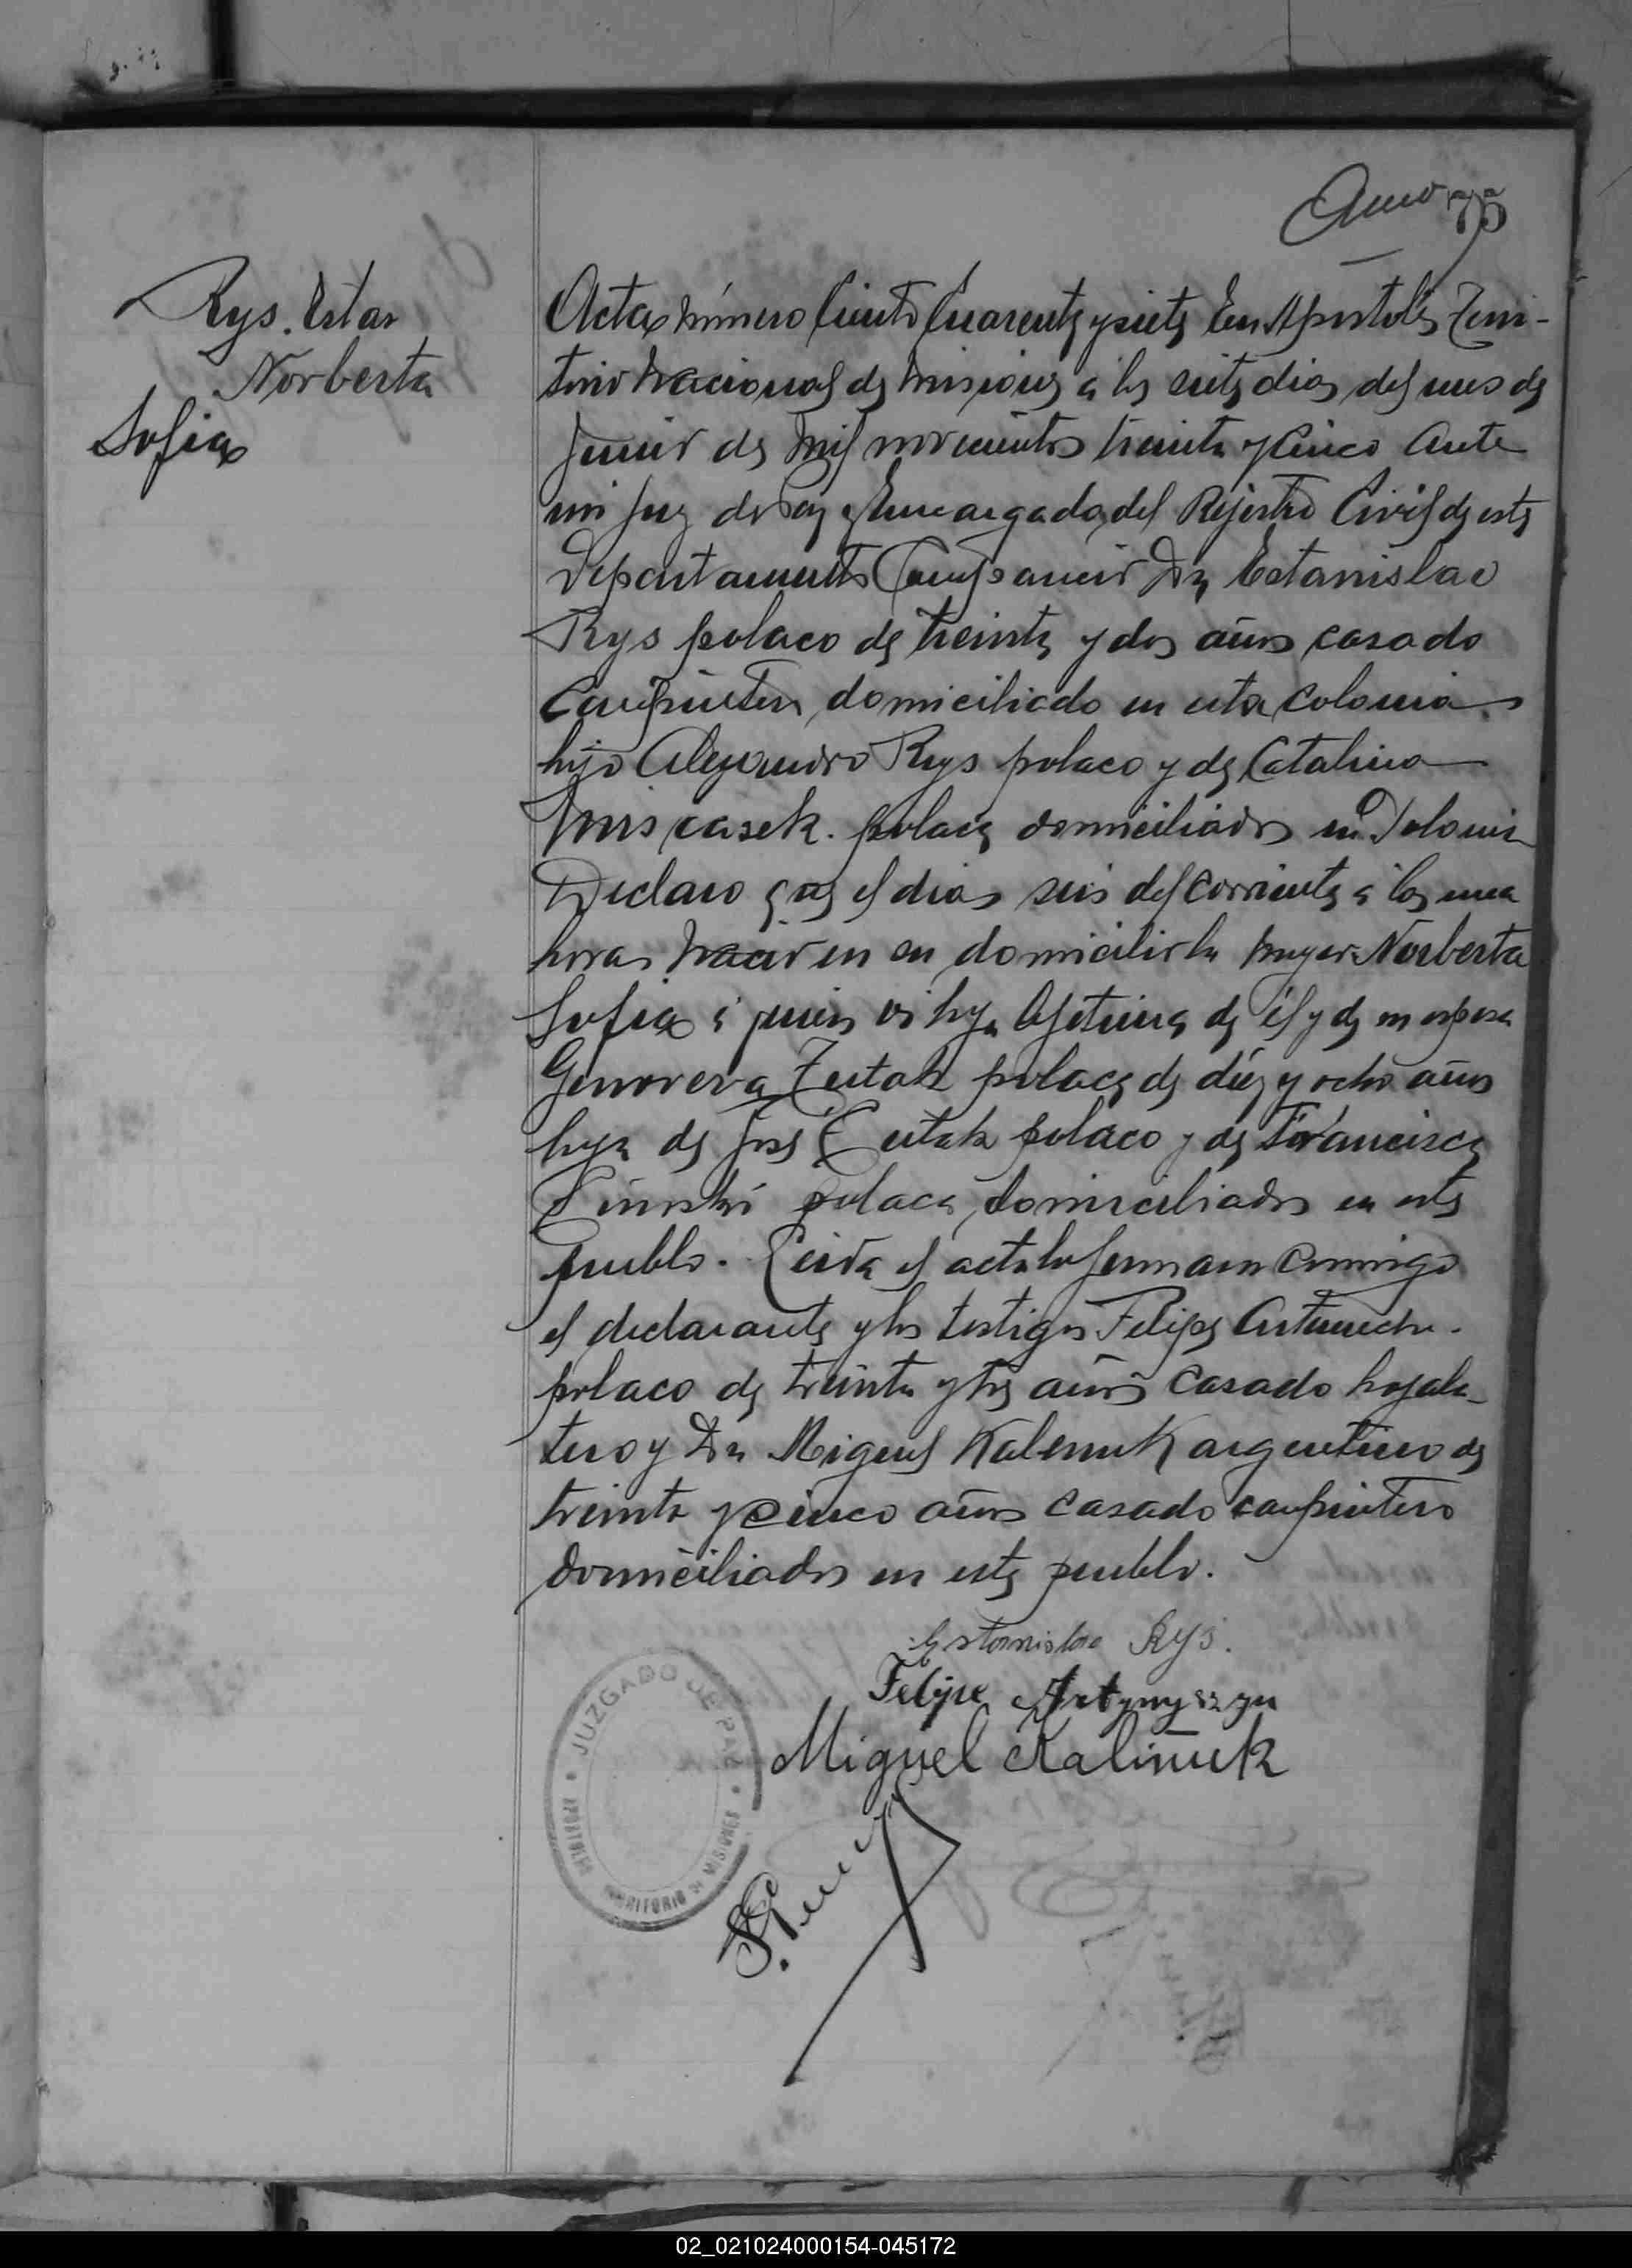 75
Rys. Estas
Norberta
Sofia
Acta número Ciento Cuarenta y siete En Apostoles Terri-
torio Nacional de Misiones a los siete dias del mes de
Junio de mil novecientos treinta y cinco Ante
mi Juez de Paz y Encargado del Rejistro Civil de este
Departamento Compareció Dn Estanislao
Rys polaco de treinta y dos años casado
carpintero domiciliado en esta colonia
hijo Alejandro Rys polaco y de Catalina
polaca domiciliados en Polonia
Declaro que el dia seis del corriente a las
horas Nació en su domicilio la mujer Norberta
Sofia a quien es hija lejitima de él y de su esposa
Genoveva Zestak polaca de diez y ocho años
hija de José Zestak polaco y de Francisca
polaca domiciliados en este
pueblo. Leida el acta la firmaron conmigo
el declarante y los testigos Felipe
polaco de treinta y tres años casado hojala-
tero y Dn Miguel Kalenuk argentino de
treinta y cinco años casado carpintero
domiciliados en este pueblo.
Estanislao Rys.
Felipe Artymyszyn
Miguel Kaliñuk
JUZGADO DE PAZ
APOSTOLES
TERRITORIO DE MISIONES
02_021024000154-045172